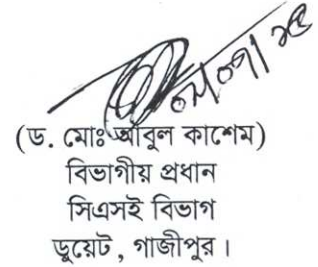 (ড. মোঃ আবুল কাশেম)
বিভাগীয় প্রধান
সিএসই বিভাগ
ডুয়েট , গাজীপুর ।